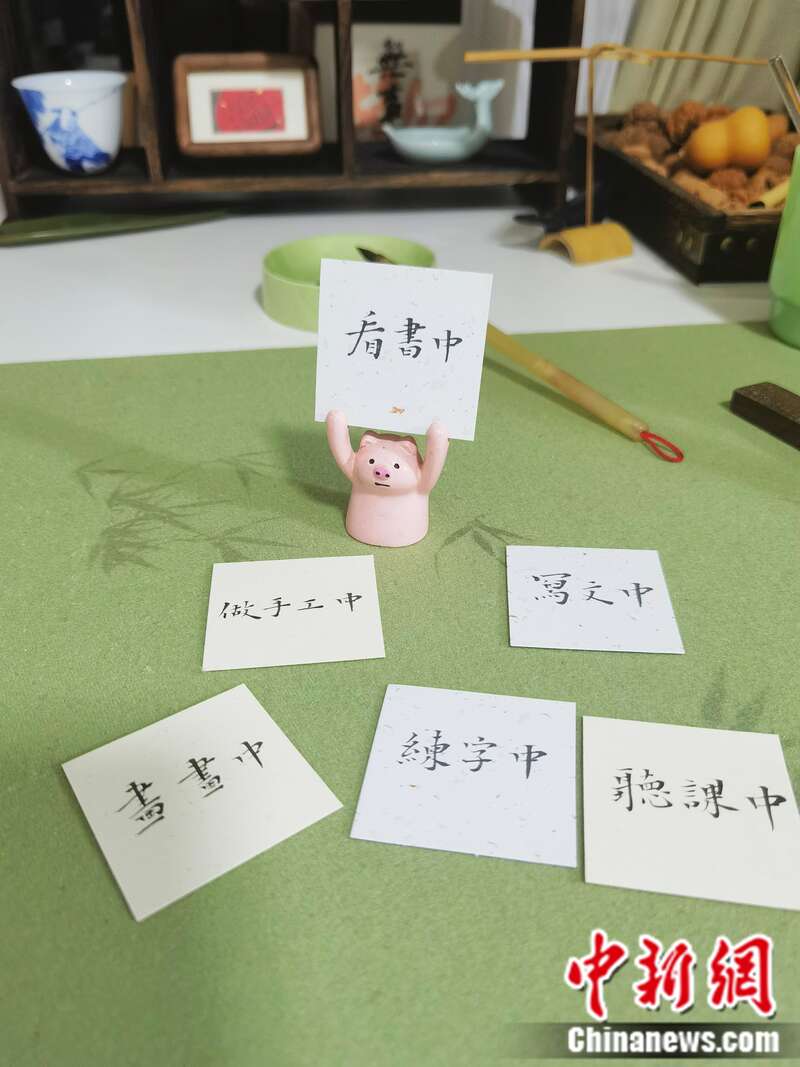 看書中
做手工中
寫文中
畫畫中
練字中
聽課中
中新网
Chinanews.com